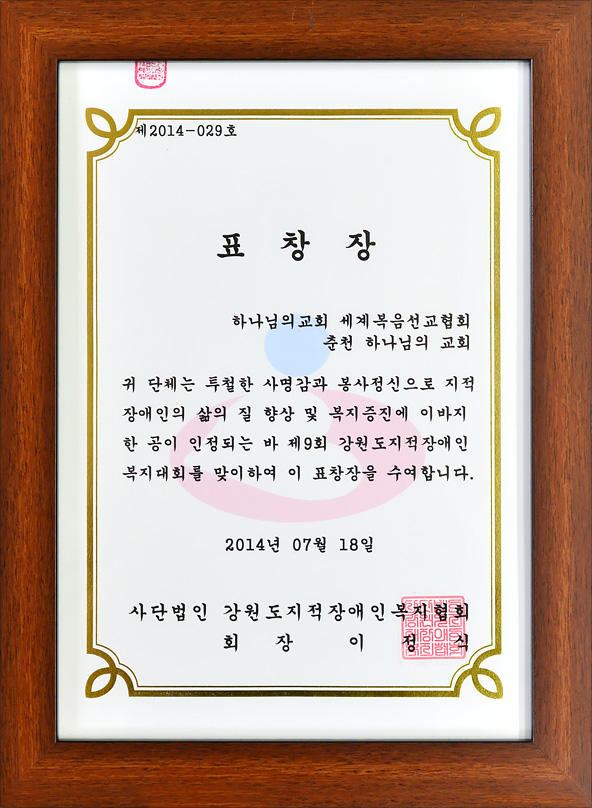 제2014-029호
표 창 장
하나님의교회 세계복음선교협회
춘천 하나님의 교회
귀 단체는 투철한 사명감과 봉사정신으로 지적
장애인의 삶의 질 향상 및 복지증진에 이바지
한 공이 인정되는 바 제9회 강원도지적장애인
복지대회를 맞이하여 이 표창장을 수여합니다.
2014년 07월 18일
사단법인 강원도지적장애인복지협회
회 장 이 정 식